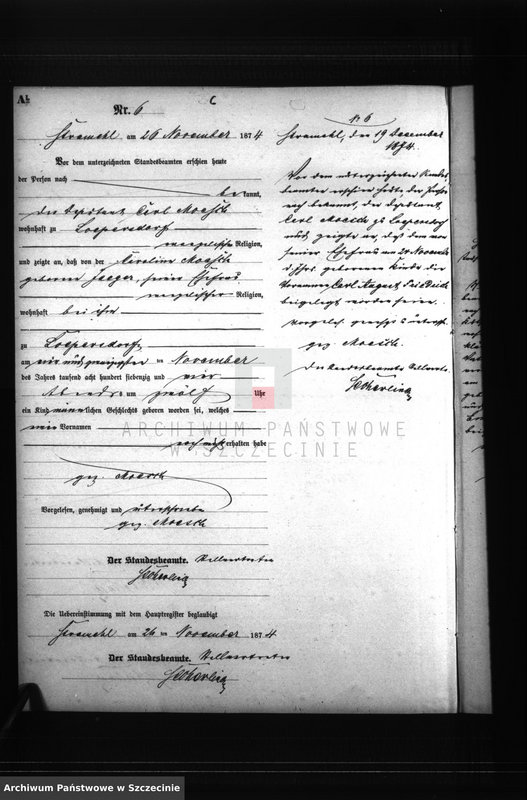 A½
Nr. 6
C
Stramehl am 26 November 1874
Vor dem unterzeichneten Standesbeamten erschien heute
der Persönlichkeit nach
bekannt,
der Deputant Carl Maesch
wohnhaft zu Loepersdorf
evangelischer Religion,
und zeigte an, daß von der Caroline Maesch
geborene Jaeger, seine Ehefrau
evangelischer Religion,
wohnhaft bei ihm
zu Loepersdorf
am vier und zwanzigsten November
des Jahres tausend acht hundert siebenzig und vier
Abends um zwölf Uhr
ein Kind männlichen Geschlechts geboren worden sei, welches
Vornamen
noch nicht erhalten habe
gez. Maesch
Vorgelesen, genehmigt und unterschrieben
gez. Maesch
Der Standesbeamte. Stellvertreter
Die Uebereinstimmung mit dem Hauptregister beglaubigt
Stramehl am 26 November 1874
Der Standesbeamte. Stellvertreter
№ 6
Stramehl, den 19 December
1874.
Vor dem unterzeichneten Standes-
beamten erschien heute der Person
nach bekannt, der Deputant
Carl Maesch zu Loepersdorf
und zeigte an, daß dem von
seiner Ehefrau am 24 November
d. Jhrs. geborenen Kinde die
Vornamen Carl August Friedrich
beigelegt worden seien.
Vorgel. genehm. u. untersch.
gez. Maesch.
Der Standesbeamte Stellvertr.
ARCHIWUM PAŃSTWOWE
W SZCZECINIE
Archiwum Państwowe w Szczecinie